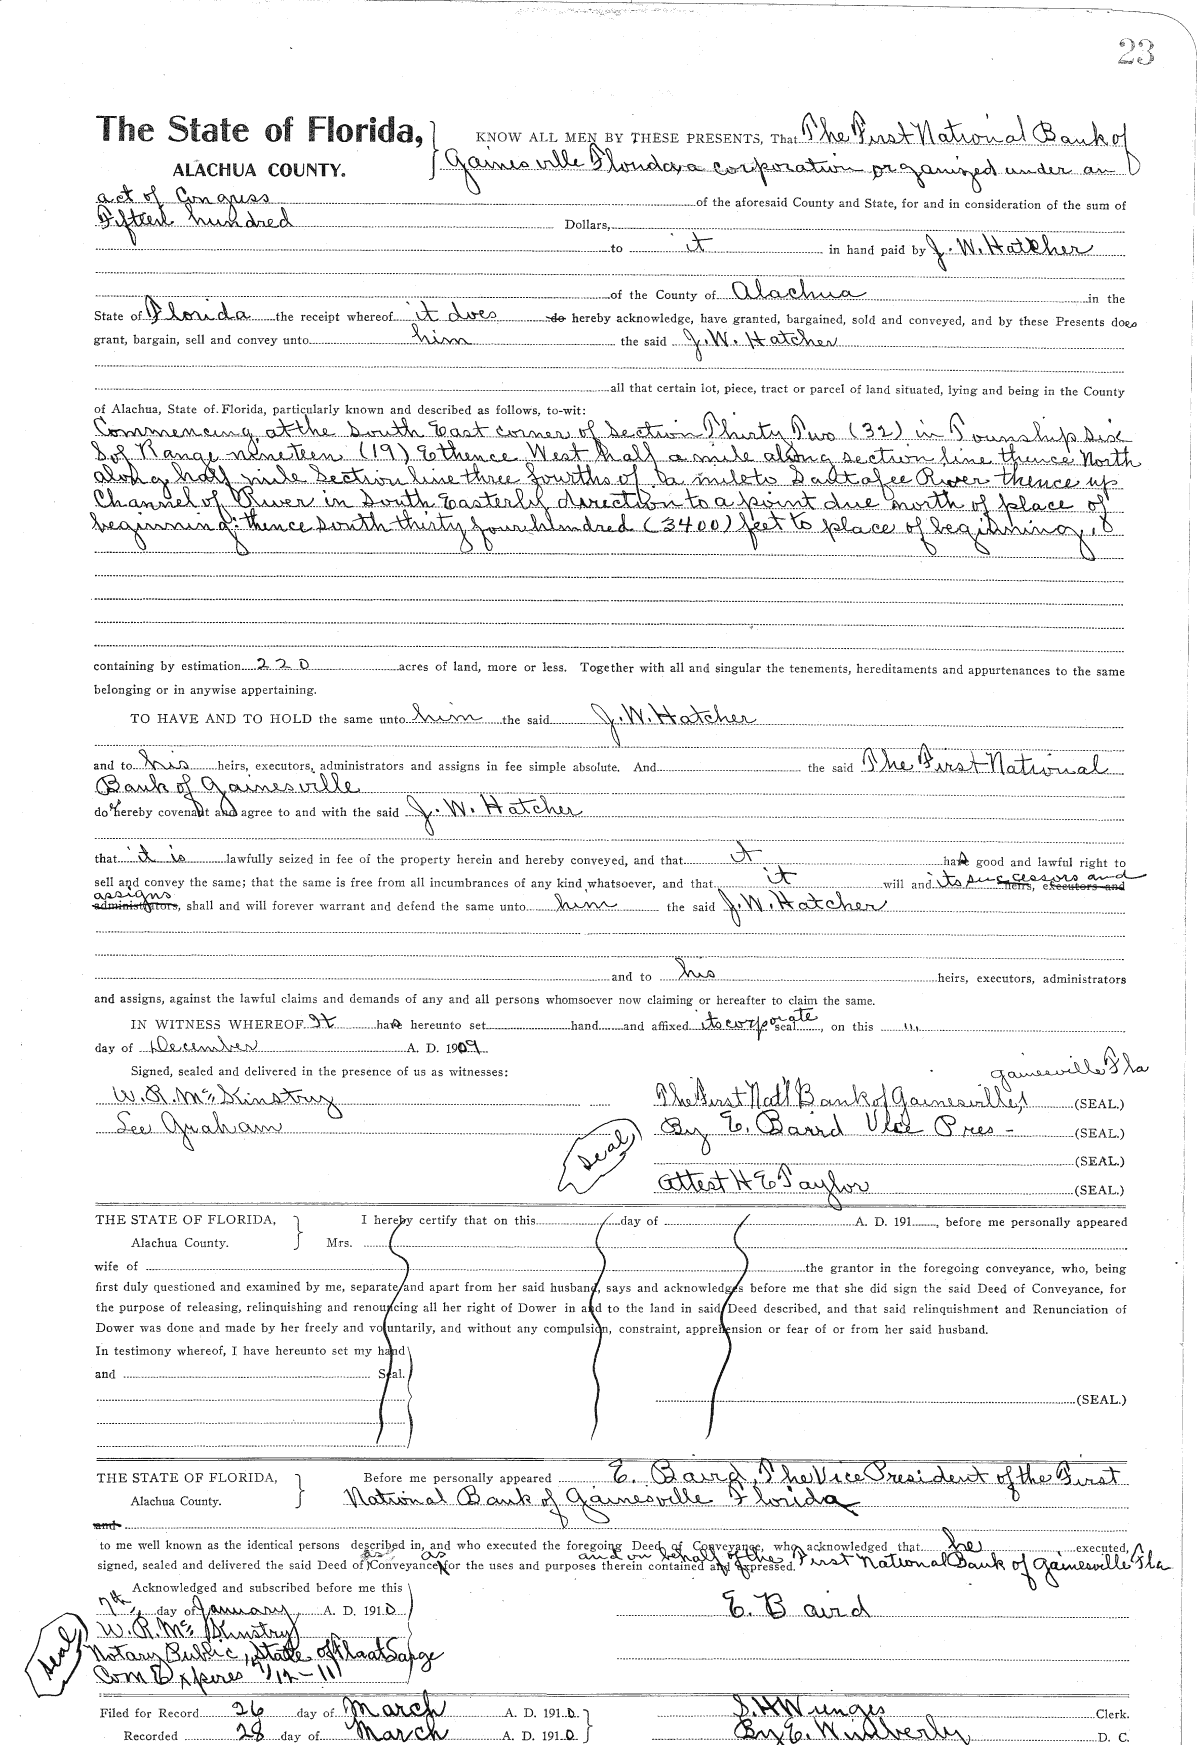 23
The State of Florida, KNOW ALL MEN BY THESE PRESENTS, That The First National Bank of
ALACHUA COUNTY. Gainesville Florida, a corporation organized under an
act of Congress of the aforesaid County and State, for and in consideration of the sum of
Fifteen hundred Dollars,
to it in hand paid by J. W. Hatcher
of the County of Alachua in the
State of Florida the receipt whereof it does do hereby acknowledge, have granted, bargained, sold and conveyed, and by these Presents does
grant, bargain, sell and convey unto him the said J. W. Hatcher
all that certain lot, piece, tract or parcel of land situated, lying and being in the County
of Alachua, State of Florida, particularly known and described as follows, to-wit:
Commencing at the South East corner of Section Thirty Two (32) in Township Six
S of Range nineteen (19) E thence West half a mile along section line thence North
along half mile Section line three fourths of a mile to Santafee River thence up
Channel of River in South Easterly direction to a point due north of place of
beginning: thence South thirty four hundred (3400) feet to place of beginning,
containing by estimation 220 acres of land, more or less. Together with all and singular the tenements, hereditaments and appurtenances to the same
belonging or in anywise appertaining.
TO HAVE AND TO HOLD the same unto him the said J. W. Hatcher
and to his heirs, executors, administrators and assigns in fee simple absolute. And the said The First National
Bank of Gainesville
do hereby covenant and agree to and with the said J. W. Hatcher
that it is lawfully seized in fee of the property herein and hereby conveyed, and that it has good and lawful right to
sell and convey the same; that the same is free from all incumbrances of any kind whatsoever, and that it will and its successors and heirs, executors and
assigns administrators, shall and will forever warrant and defend the same unto him the said J. W. Hatcher
and to his heirs, executors, administrators
and assigns, against the lawful claims and demands of any and all persons whomsoever now claiming or hereafter to claim the same.
IN WITNESS WHEREOF It has hereunto set hand and affixed its corporate seal, on this
day of December A. D. 1909
Signed, sealed and delivered in the presence of us as witnesses: Gainesville Fla
W. R. McKinstry The First Natl Bank of Gainesville, (SEAL.)
Lee Graham Seal By E. Baird Vice Pres - (SEAL.)
(SEAL.)
Attest H E Taylor (SEAL.)
THE STATE OF FLORIDA, I hereby certify that on this day of A. D. 191, before me personally appeared
Alachua County. Mrs.
wife of the grantor in the foregoing conveyance, who, being
first duly questioned and examined by me, separate and apart from her said husband, says and acknowledges before me that she did sign the said Deed of Conveyance, for
the purpose of releasing, relinquishing and renouncing all her right of Dower in and to the land in said Deed described, and that said relinquishment and Renunciation of
Dower was done and made by her freely and voluntarily, and without any compulsion, constraint, apprehension or fear of or from her said husband.
In testimony whereof, I have hereunto set my hand
and Seal.
(SEAL.)
THE STATE OF FLORIDA, Before me personally appeared E. Baird, The Vice President of the First
Alachua County. National Bank of Gainesville Florida
and
to me well known as the identical persons described in, and who executed the foregoing Deed of Conveyance, who acknowledged that he executed,
signed, sealed and delivered the said Deed of Conveyance for the uses and purposes therein contained and expressed. and on behalf of the First National Bank of Gainesville Fla
Acknowledged and subscribed before me this
7th day of January A. D. 1910 E. Baird
W. R. McKinstry
Seal Notary Public, State of Fla at Large
Com Expires
Filed for Record 26 day of March A. D. 1910 Clerk.
Recorded 28 day of March A. D. 1910 By E. Wimberly D. C.